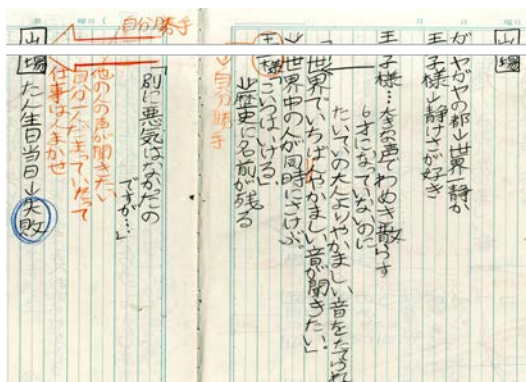 山場
ガヤガヤの都→世界一静か
王子様→静けさが好き
王子様…大きな声でわめき散らす
6才になっていないのに
たいていの大人よりやかましい音をたてられ
「世界でいちばんやかましい音が聞きたい。」
→世界中の人が同時にさけぶ
王様「こいつはいける」
→歴史に名前が残る
→自分勝手
自分勝手
「別に悪気はなかたの
ですが…」
他の人の声が聞きたい
自分一人だまっていたって
仕事は人まかせ
山場
たん生日当日→失敗
月 日 曜日